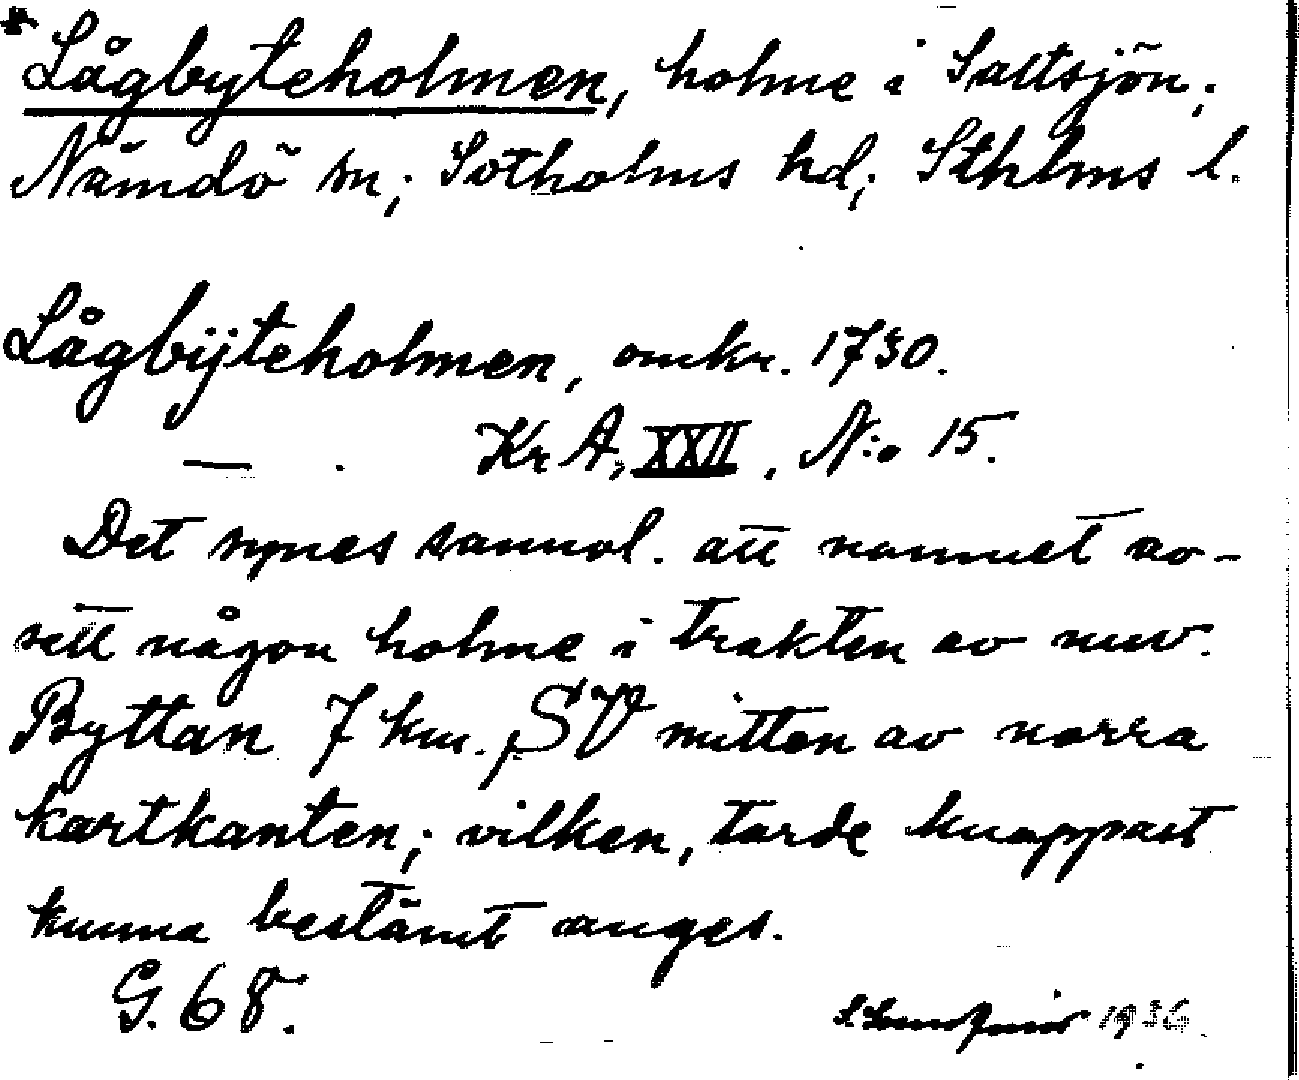 * Lågbyteholmen, holme i Saltsjön;
Nämdö sn; Sotholms hd; Sthlms l.
Lågbÿteholmen, omkr. 1730.
— . Kr A, XXII, N:o 15.
Det synes sannol. att namnet av-
sett någon holme i trakten av nuv.
Byttan 7 km. SV mitten av norra
kartkanten; vilken, torde knappast
kunna bestämt anges.
G. 68.
1936